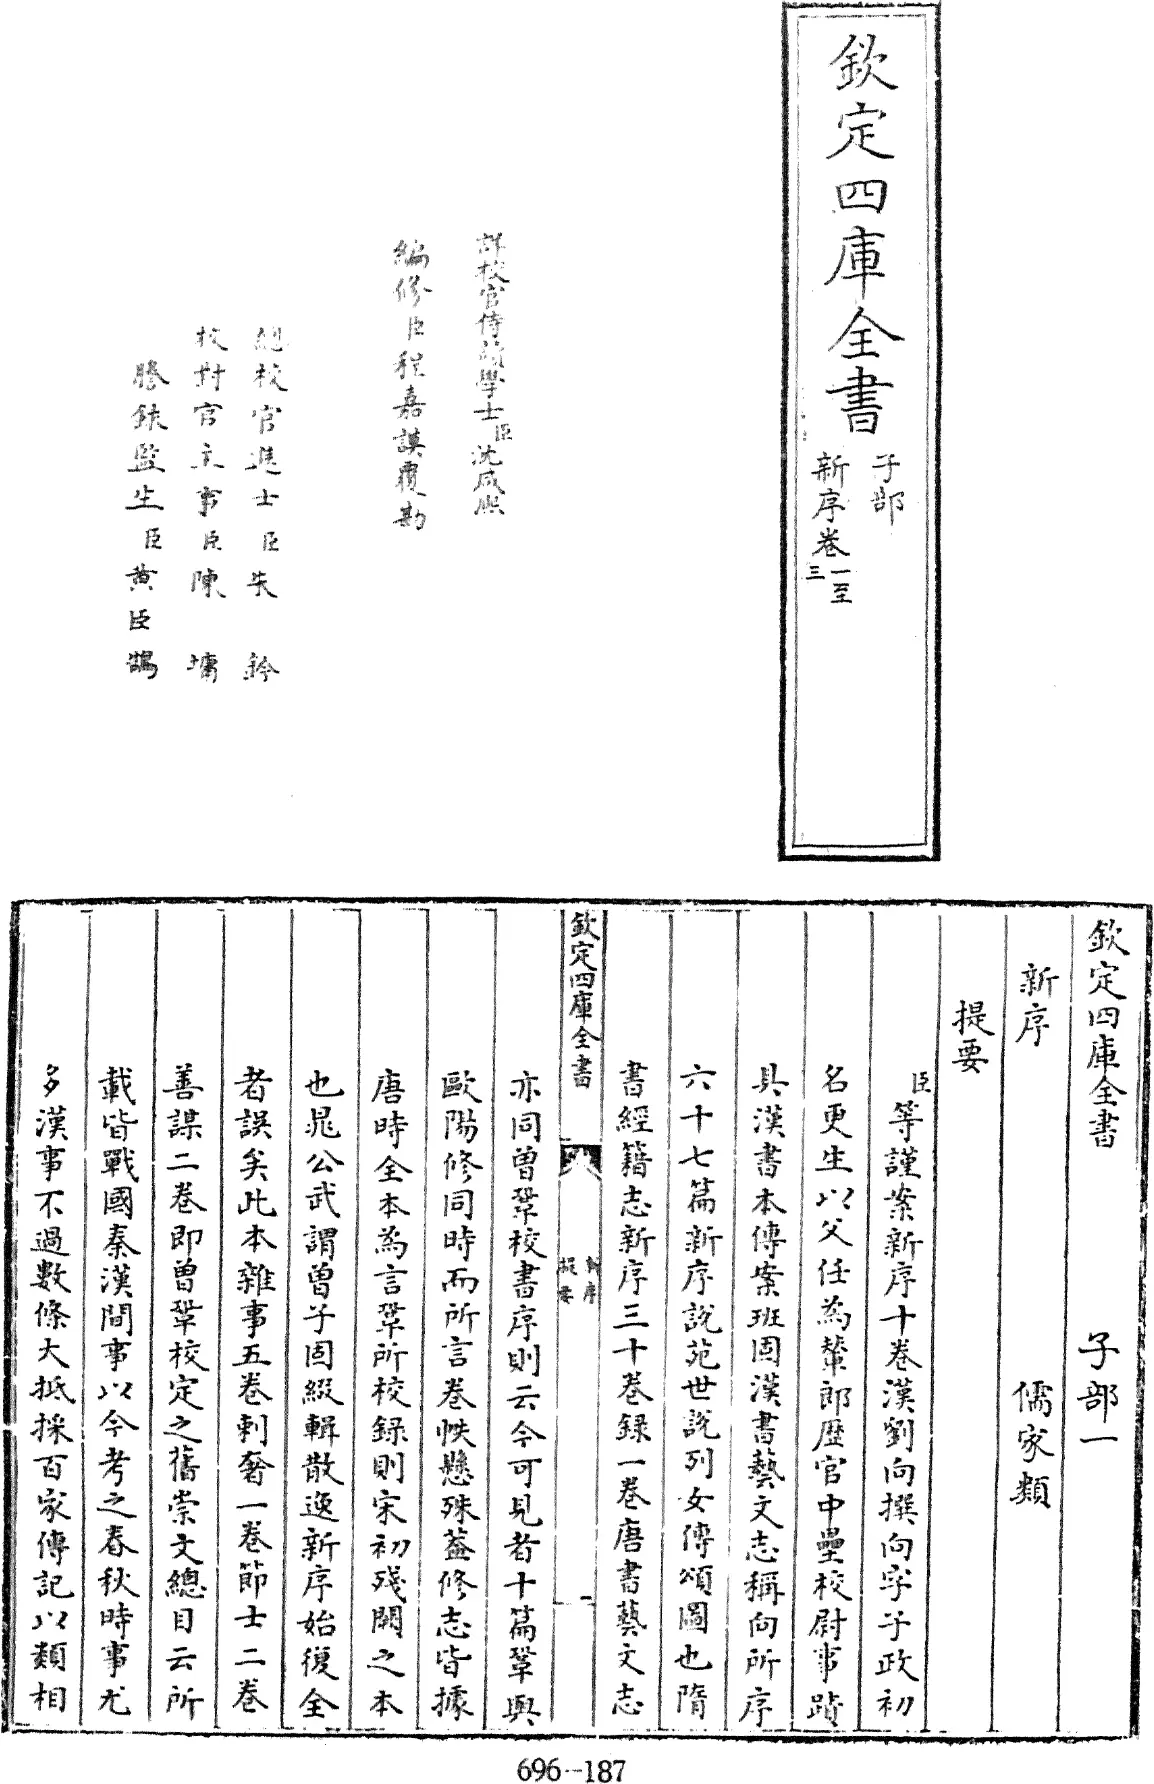 欽定四庫全書
子部
新序卷一至三
詳校官侍讀學士臣沈咸熙
編修臣程嘉謨覆勘
總校官進士臣朱鈐
校對官主事臣陳墉
謄録監生臣黃臣鵠
欽定四庫全書
子部一
新序
儒家類
提要
臣等謹案新序十卷漢劉向撰向字子政初
名更生以父任為輦郎歷官中壘校尉事蹟
具漢書本傳案班固漢書藝文志稱向所序
六十七篇新序說苑世說列女傳頌圖也隋
書經籍志新序三十卷録一卷唐書藝文志
欽定四庫全書
新序
提要
一
亦同曾鞏校書序則云今可見者十篇鞏與
歐陽修同時而所言卷帙懸殊葢修志皆據
唐時全本為言鞏所校録則宋初殘闕之本
也晁公武謂曾子固綴輯散逸新序始復全
者誤矣此本雜事五卷刺奢一卷節士二卷
善謀二卷即曾鞏校定之舊崇文總目云所
載皆戰國秦漢間事以今考之春秋時事尤
多漢事不過數條大抵採百家傳記以類相
696-187